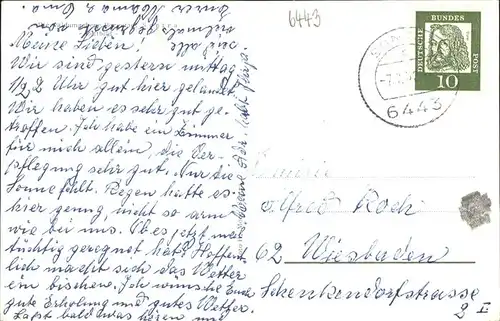 6443
Meine Lieben!
Wir sind gestern mittag
1/2 2 Uhr gut hier gelandet.
Wir haben es sehr gut ge-
troffen. Ich habe ein Zimmer
für mich allein, die Ver-
pflegung sehr gut. Nur die
Sonne fehlt. Regen hatte es
hier genug, nicht so arm
wie bei uns. Ob es jetzt mal
tüchtig geregnet hat? Hoffent-
lich macht sich das Wetter
ein bischen. Ich wünsche Euch
gute Erholung und gutes Wetter.
Laßt bald was hören
seid alle
Eurer Mama & Oma
DEUTSCHE BUNDESPOST
10
6443
Familie
Alfred Koch
62 Wiesbaden
Schenkendorfstrasse
2 I